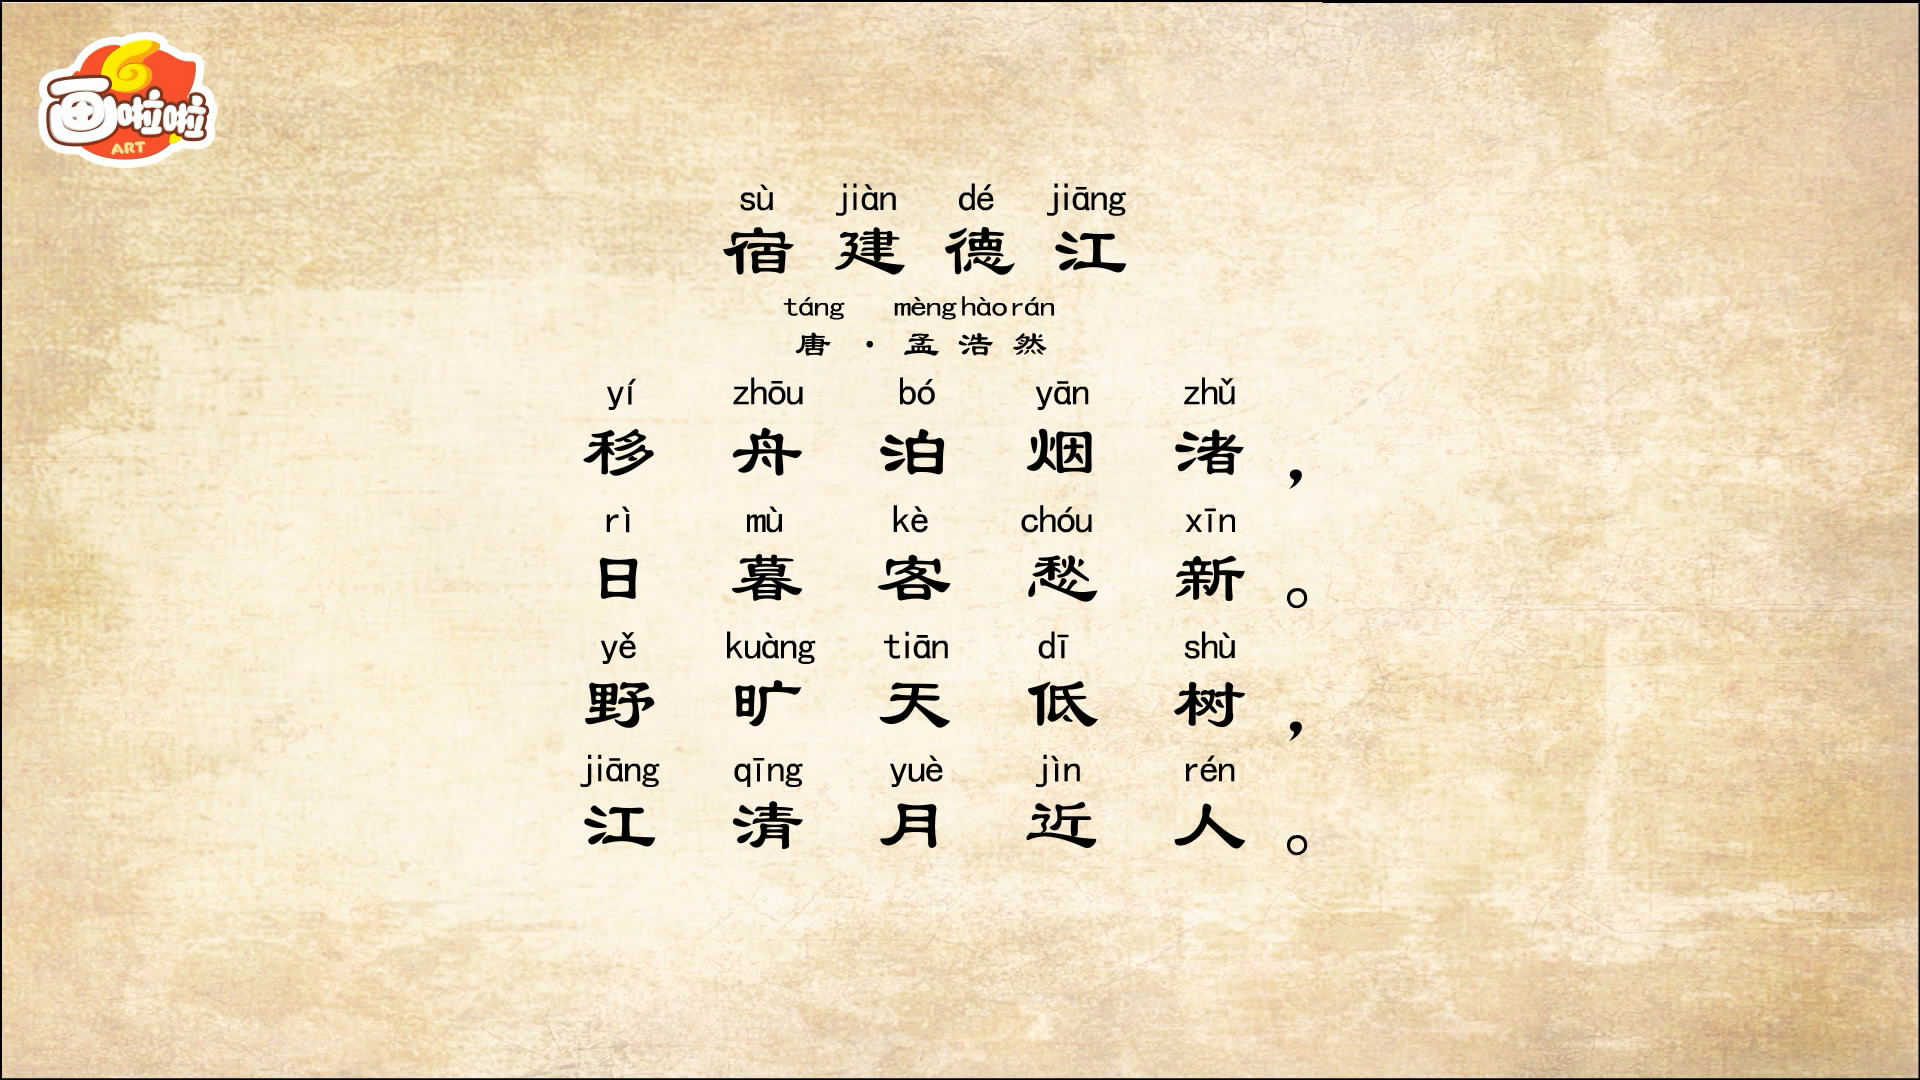 画啦啦
ART
sù jiàn dé jiāng
宿建德江
táng mèng hào rán
唐·孟浩然
yí zhōu bó yān zhǔ
移舟泊烟渚，
rì mù kè chóu xīn
日暮客愁新。
yě kuàng tiān dī shù
野旷天低树，
jiāng qīng yuè jìn rén
江清月近人。